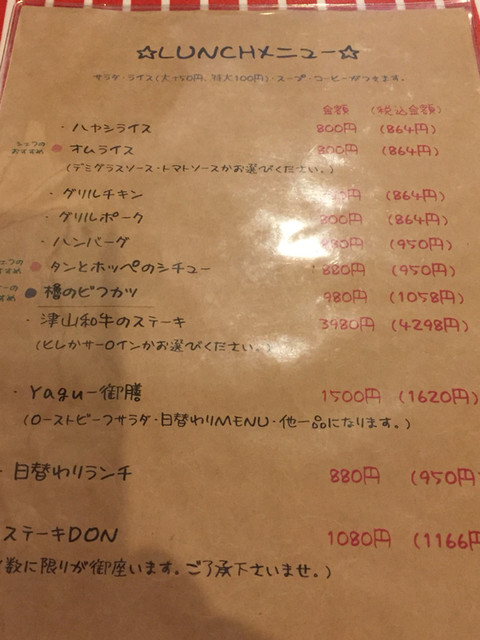 ☆LUNCHメニュー☆
サラダ・ライス(大+50円、特大100円)・スープ・コーヒーがつきます。
金額 (税込金額)
・ハヤシライス 800円 (864円)
シェフのおすすめ ●オムライス 800円 (864円)
(デミグラスソース・トマトソースかお選びください。)
・グリルチキン (864円)
・グリルポーク 800円 (864円)
・ハンバーグ 880円 (950円)
●タンとホッペのシチュー 880円 (950円)
●櫓のビフカツ 980円 (1058円)
・津山和牛のステーキ 3980円 (4298円)
(ヒレかサーロインかお選びください。)
・Yagu-御膳 1500円 (1620円)
(ローストビーフサラダ・日替わりMENU・他一品になります。)
・日替わりランチ 880円 (950円)
ステーキDON 1080円 (1166円
数に限りが御座います。ご了承下さいませ。)